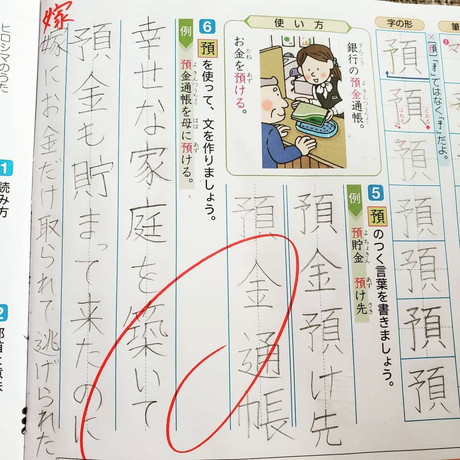 字の形
預
預
預
預
預
預
使い方
銀行の預金通帳。
お金を預ける。
5 預のつく言葉を書きましょう。
例 預貯金 預け先
預金預け先
預金通帳
6 預を使って、文を作りましょう。
例 預金通帳を母に預ける。
幸せな家庭を築いて
預金も貯まって来たのに
嫁にお金だけ取られて逃げられた
嫁
ヒロシマのうた
1 読み方
2